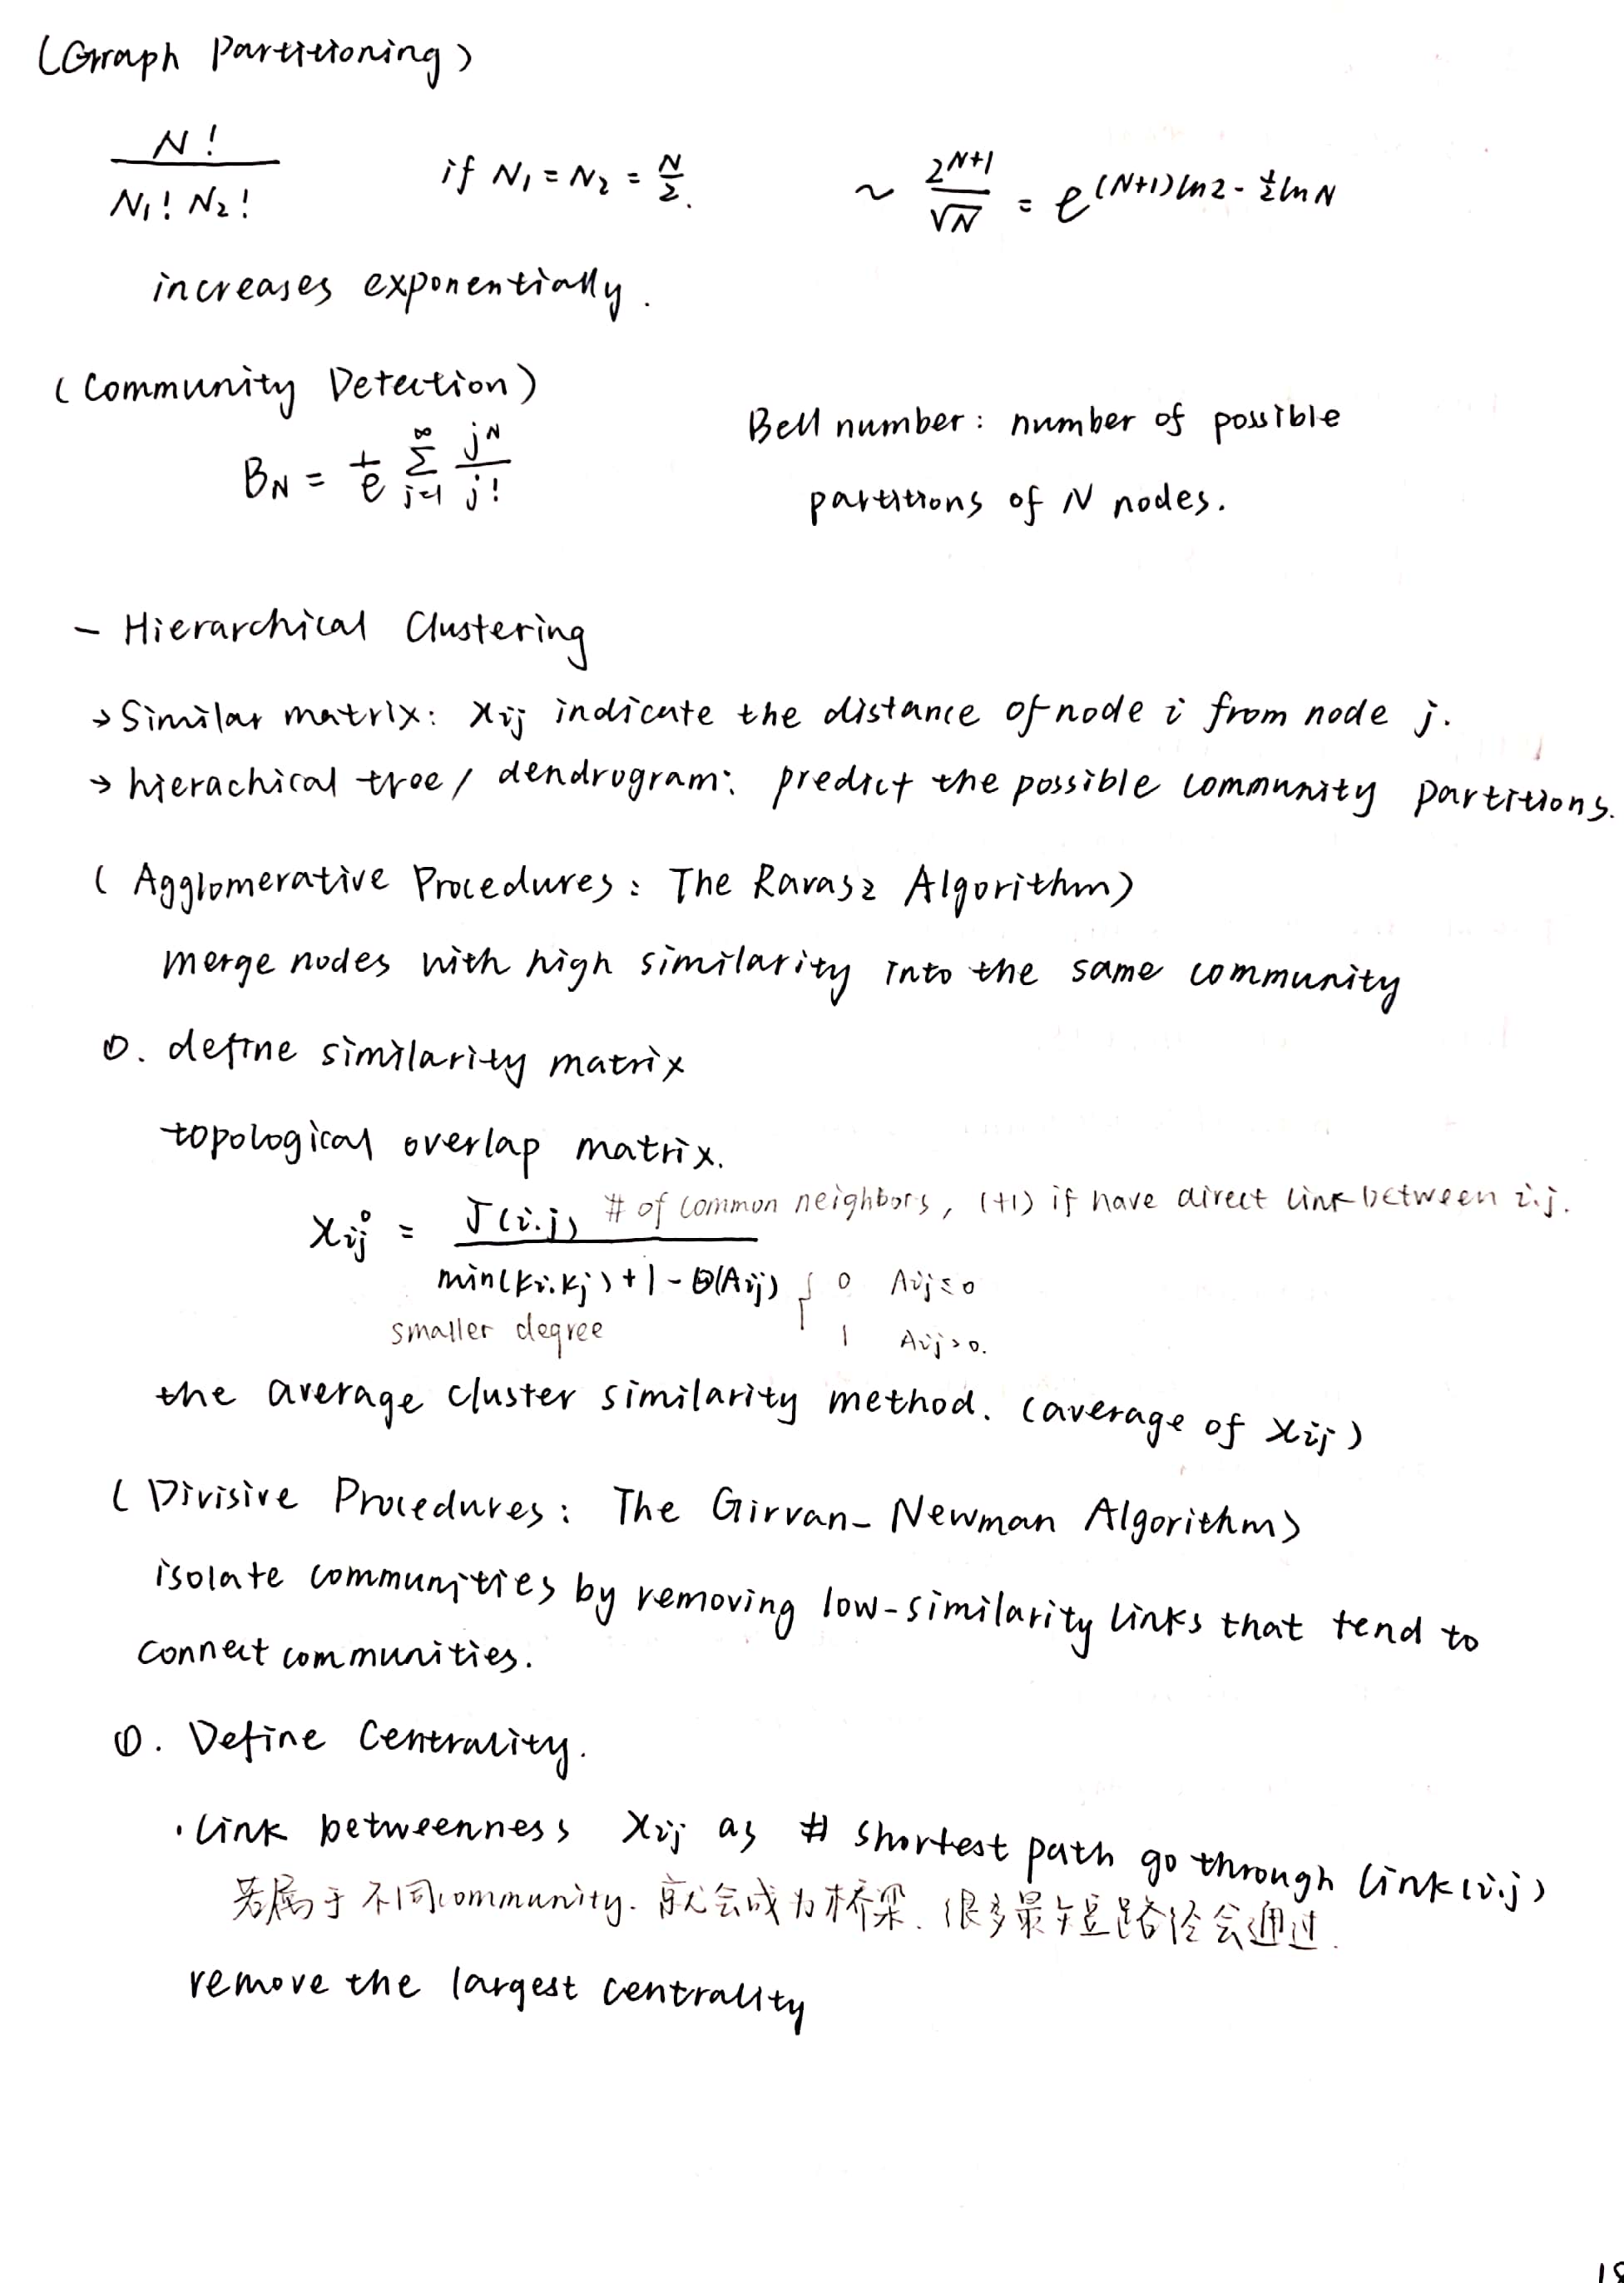 (Graph Partitioning)
N! / N₁! N₂!   if N₁ = N₂ = N/2.   ~ 2^(N+1) / √N = e^((N+1)ln2 - ½lnN)
increases exponentially.
(Community Detection)
B_N = 1/e ∑_{j=1}^{∞} j^N / j!
Bell number: number of possible
partitions of N nodes.
- Hierarchical Clustering
→ Similar matrix: xij indicate the distance of node i from node j.
→ hierachical tree / dendrogram: predict the possible community partitions.
(Agglomerative Procedures: The Ravasz Algorithm)
merge nodes with high similarity into the same community
①. define similarity matrix
topological overlap matrix.
xij° = J(i.j) / min(ki.kj) + 1 - Θ(Aij)
# of common neighbors, (+1) if have direct link between i.j.
{ 0 Aij ≤ 0
1 Aij > 0.
smaller degree
the average cluster similarity method. (average of xij)
(Divisive Procedures: The Girvan-Newman Algorithm)
isolate communities by removing low-similarity links that tend to
connect communities.
①. Define Centrality.
· link betweenness xij as # shortest path go through link(i.j)
若属于不同community. 就会成为桥梁. 很多最短路径会通过.
remove the largest centrality
18